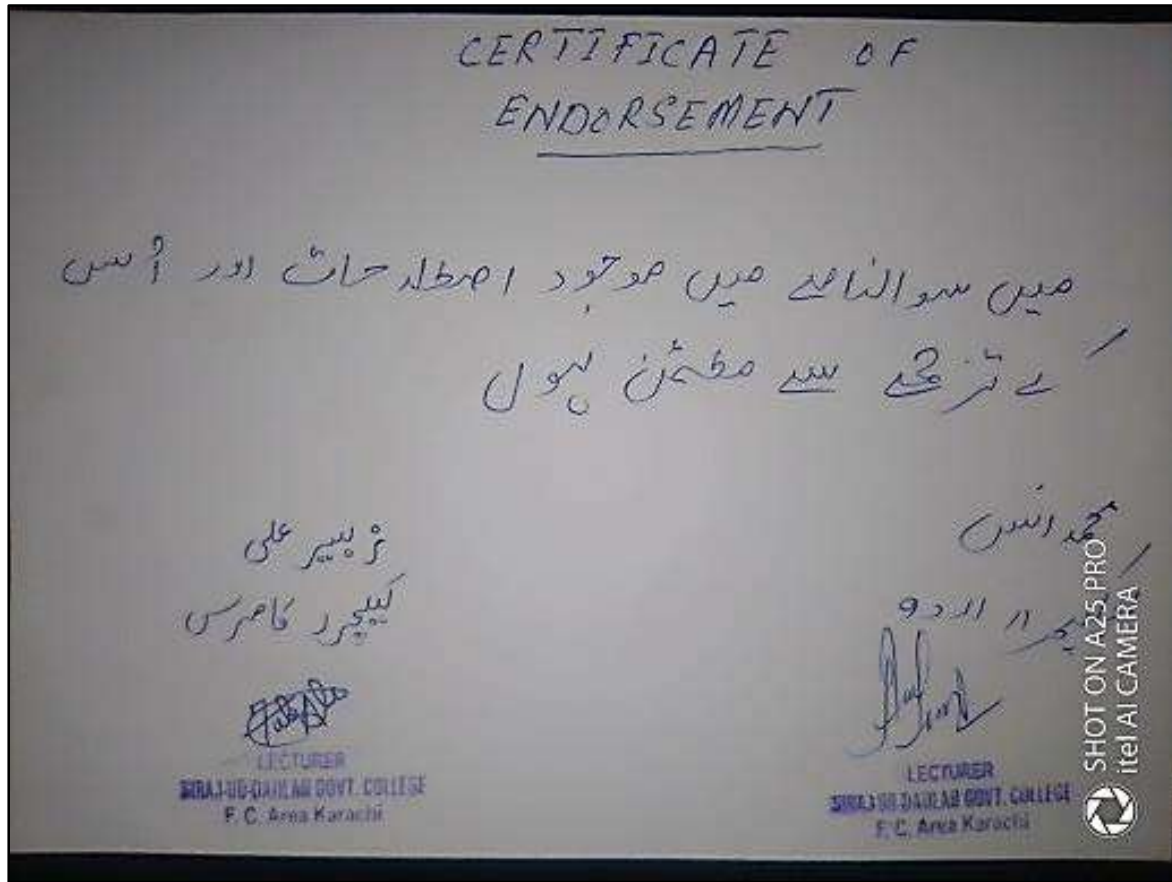 CERTIFICATE OF
ENDORSEMENT
میں سوالنامے میں موجود اصطلاحات اور اُس
کے ترجمے سے مطمئن ہوں
محمد انس
لیکچرر اردو
زبیر علی
لیکچرر کامرس
LECTURER
SIRAJ-UD-DAULAH GOVT. COLLEGE
F. C. Area Karachi
LECTURER
SIRAJ-UD-DAULAH GOVT. COLLEGE
F. C. Area Karachi
SHOT ON A25 PRO
itel AI CAMERA